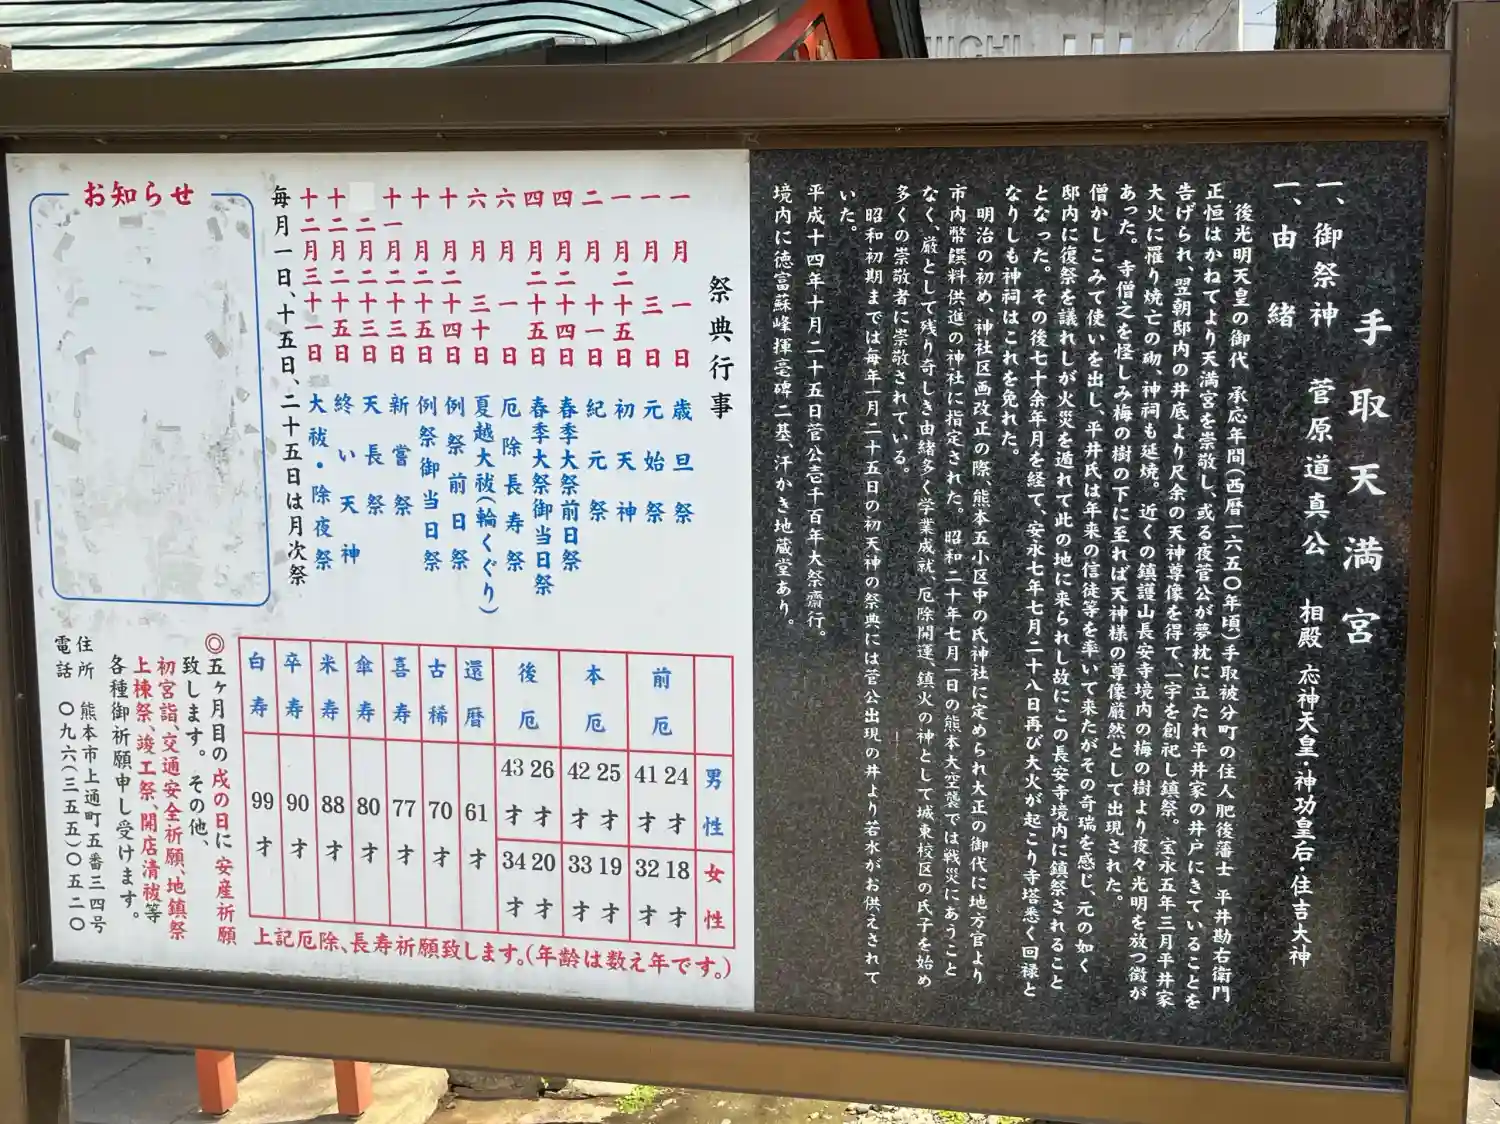 手取天満宮
一、御祭神　菅原道真公　相殿　応神天皇・神功皇后・住吉大神
一、由緒
後光明天皇の御代　承応年間(西暦一六五〇年頃)手取被分町の住人肥後藩士　平井勘右衛門
正恒はかねてより天満宮を崇敬し、或る夜菅公が夢枕に立たれ平井家の井戸にきていることを
告げられ、翌朝邸内の井底より尺余の天神尊像を得て、一宇を創祀し鎮祭。宝永五年三月平井家
大火に罹り焼亡の砌、神祠も延焼。近くの鎮護山長安寺境内の梅の樹より夜々光明を放つ徴が
あった。寺僧之を怪しみ梅の樹の下に至れば天神様の尊像厳然として出現された。
僧かしこみて使いを出し、平井氏は年来の信徒等を率いて来たがその奇瑞を感じ、元の如く
邸内に復祭を議れしが火災を遁れて此の地に来られし故にこの長安寺境内に鎮祭されること
となった。その後七十余年月を経て、安永七年七月二十八日再び大火が起こり寺塔悉く回禄と
なりしも神祠はこれを免れた。
明治の初め、神社区画改正の際、熊本五小区中の氏神社に定められ大正の御代に地方官より
市内幣饌料供進の神社に指定された。昭和二十年七月一日の熊本大空襲では戦災にあうこと
なく、厳として残り奇しき由緒多く学業成就、厄除開運、鎮火の神として城東校区の氏子を始め
多くの崇敬者に崇敬されている。
昭和初期までは毎年一月二十五日の初天神の祭典には菅公出現の井より若水がお供えされて
いた。
平成十四年十月二十五日菅公壱千百年大祭斎行。
境内に徳富蘇峰揮毫碑二基、汗かき地蔵堂あり。
祭典行事
一月一日　歳旦祭
一月三日　元始祭
一月二十五日　初天神
二月十一日　紀元祭
四月二十四日　春季大祭前日祭
四月二十五日　春季大祭御当日祭
六月一日　厄除長寿祭
六月三十日　夏越大祓(輪くぐり)
十月二十四日　例祭前日祭
十月二十五日　例祭御当日祭
十一月二十三日　新嘗祭
二月二十三日　天長祭
十二月二十五日　終い天神
十二月三十一日　大祓・除夜祭
毎月一日、十五日、二十五日は月次祭
お知らせ
前厄　本厄　後厄　還暦　古稀　喜寿　傘寿　米寿　卒寿　白寿
男性　24才　41才　25才　42才　26才　43才
女性　18才　32才　19才　33才　20才　34才
61才　70才　77才　80才　88才　90才　99才
上記厄除、長寿祈願致します。(年齢は数え年です。)
◎五ヶ月目の戌の日に安産祈願
致します。その他、
初宮詣、交通安全祈願、地鎮祭
上棟祭、竣工祭、開店清祓等
各種御祈願申し受けます。
住所　熊本市上通町五番三四号
電話　〇九六(三五五)〇五二〇